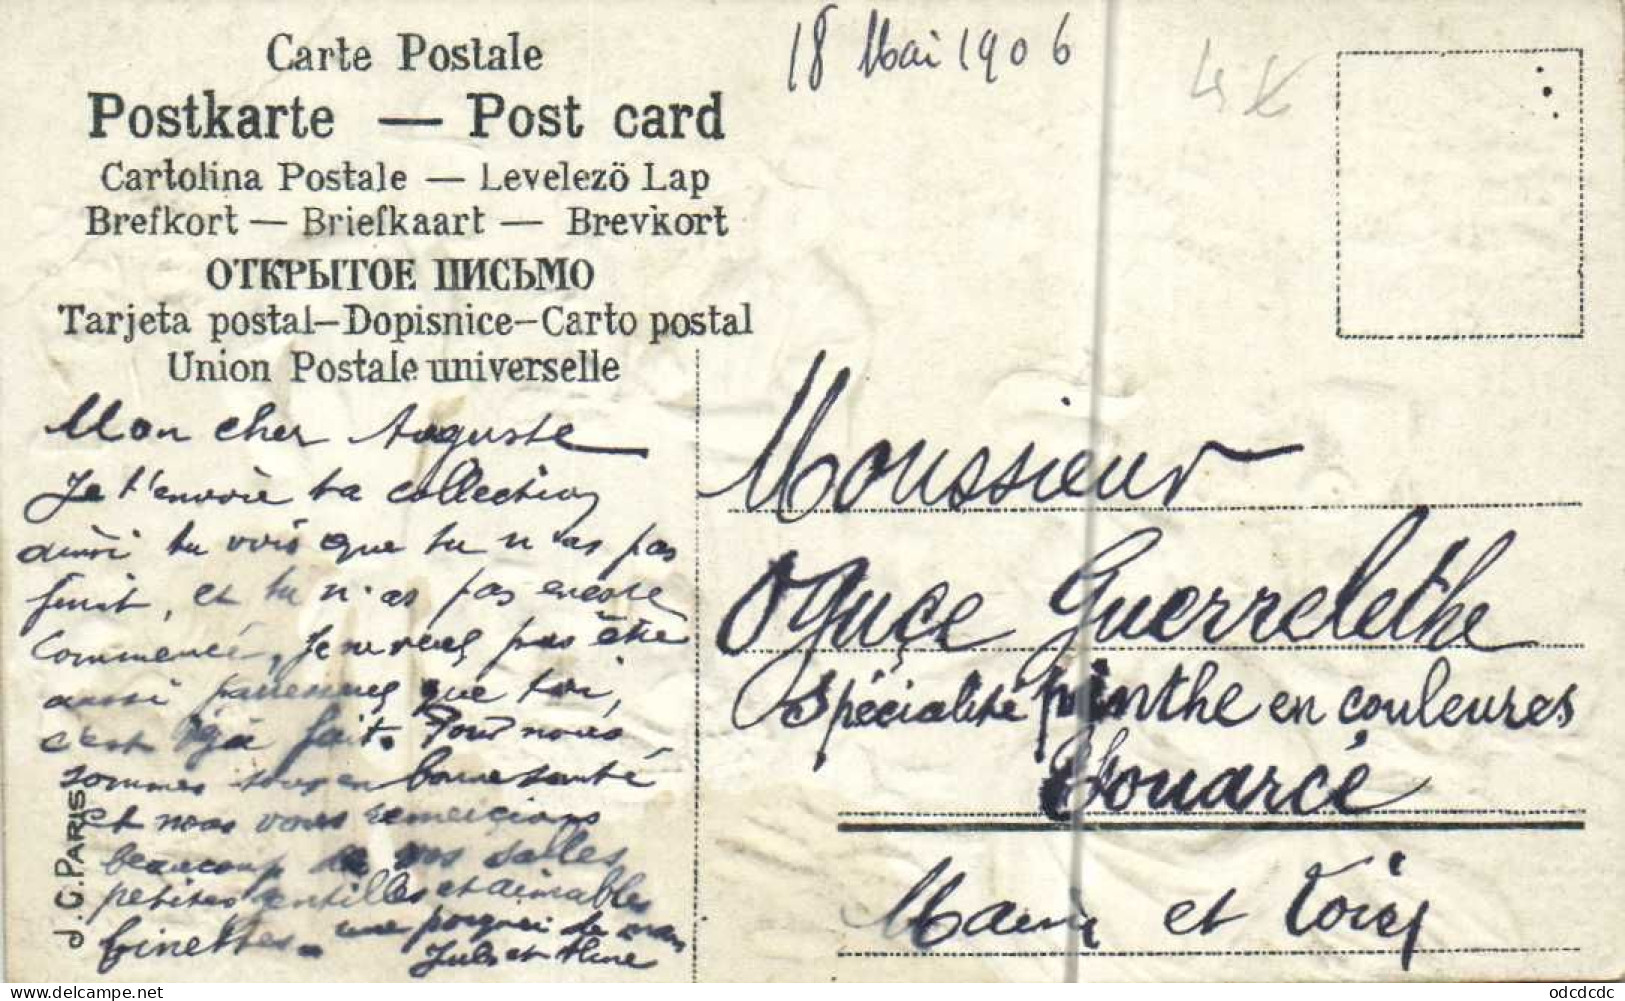 18 Mai 1906
Carte Postale
Postkarte — Post card
Cartolina Postale — Levelezö Lap
Brefkort — Briefkaart — Brevkort
ОТКРЫТОЕ ПИСЬМО
Tarjeta postal–Dopisnice–Carto postal
Union Postale universelle
Mon cher Auguste
Je t'envoie ta collection
ainsi tu vois que tu n'as pas
finit, et tu n'as pas encore
commencé, Je ne veux pas être
aussi que toi,
c'est déjà fait. Pour nous
sommes tous en bonne santé
et nous vous remercions
beaucoup de vos salles
petites gentilles et aimables
binettes. une poignée de main
Jules et
J.C. PARIS
Moussieur
Oguçe Guerrelethe
Spécialité pinthe en couleures
Thouarcé
Maine et Loire
delcampe.net
odcdcdc